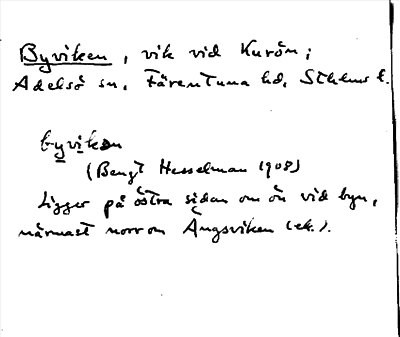 Byviken, vik vid Kurön;
Adelsö sn, Färentuna hd, Sthlms l.
byviken
(Bengt Hesselman 1908)
Ligger på östra sidan om ön vid byn,
närmast norr om Ängsviken (ek.).